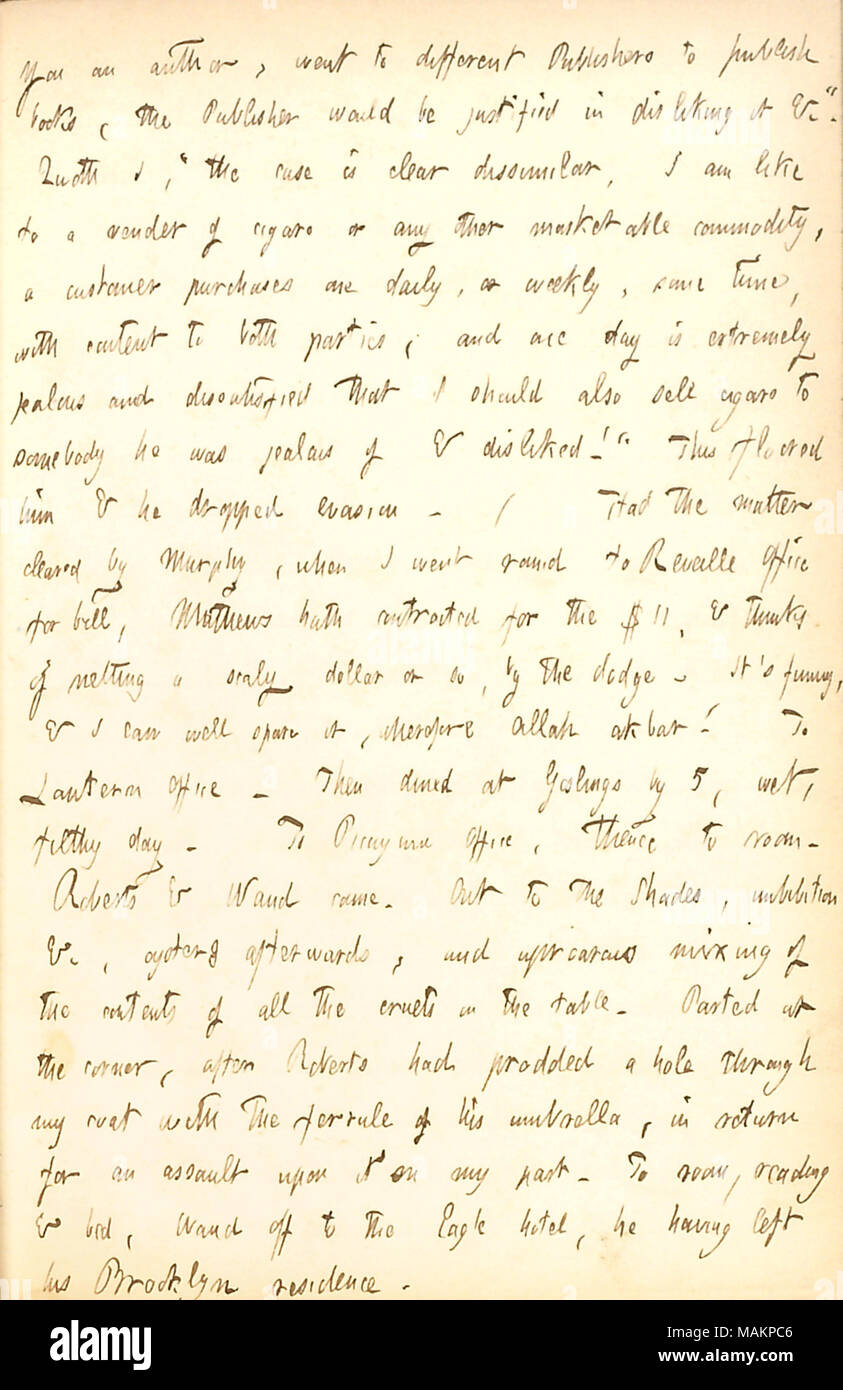 you an author, went to different Publishers to publish
books, the Publisher would be justified in disliking it &c".
Quoth I, "the case is clear dissimilar. I am like
to a vender of cigars or any other marketable commodity,
a customer purchases one daily, or weekly, some time,
with content to both parties, and one day is extremely
jealous and dissatisfied that I should also sell cigars to
somebody he was jealous of & disliked!" This floored
him & he dropped evasion. ( Had the matter
cleared by Murphy, when I went round to Reveille Office
for bill, Mathews hath contracted for the $11, & thinks
of netting a scaly dollar or so, by the dodge. It's funny,
& I can well spare it, wherefore allah akbar! To
Lantern Office. Then dined at Goslings by 5, wet,
filthy day. To Picayune Office, thence to room.
Roberts & Waud came. Out to the Shades, imbibition
&c, oysters afterwards, and uproarous mixing of
the contents of all the cruets on the table. Parted at
the corner, after Roberts had prodded a hole through
my coat with the ferrule of his umbrella, in return
for an assault upon it on my part. To room, reading
& bed, Waud off to the Eagle hotel, he having left
his Brooklyn residence.
alamy
Image ID: MAKPC6
www.alamy.com